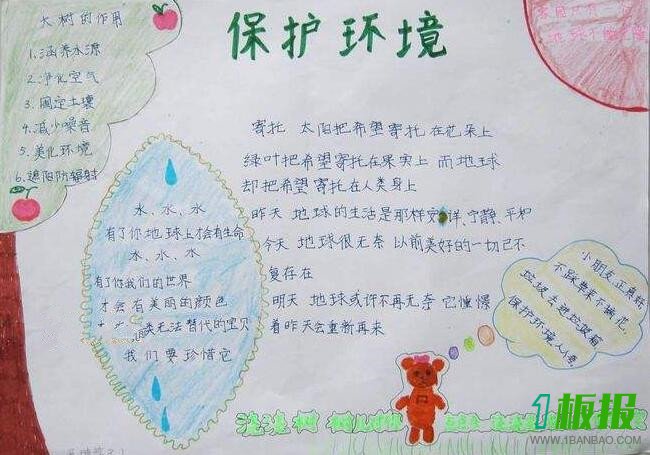 大树的作用
1.涵养水源
2.净化空气
3.固定土壤
4.减少噪音
5.美化环境
6.遮阳防辐射
保护环境
寄托 太阳把希望寄托在花朵上
绿叶把希望寄托在果实上 而地球
却把希望寄托在人类身上
昨天 地球的生活是那样安详、宁静、平和
今天 地球很无奈 以前美好的一切已不
复存在
明天 地球或许不再无奈 它憧憬
着昨天会重新再来
水、水、水
有了你地球上才会有生命
水、水、水
有了你我们的世界
才会有美丽的颜色
类无法替代的宝贝
我们要珍惜它
小朋友
不踩草来不摘花
垃圾丢进垃圾箱
保护环境人人
浇浇树
1板报
WWW.1BANBAO.COM